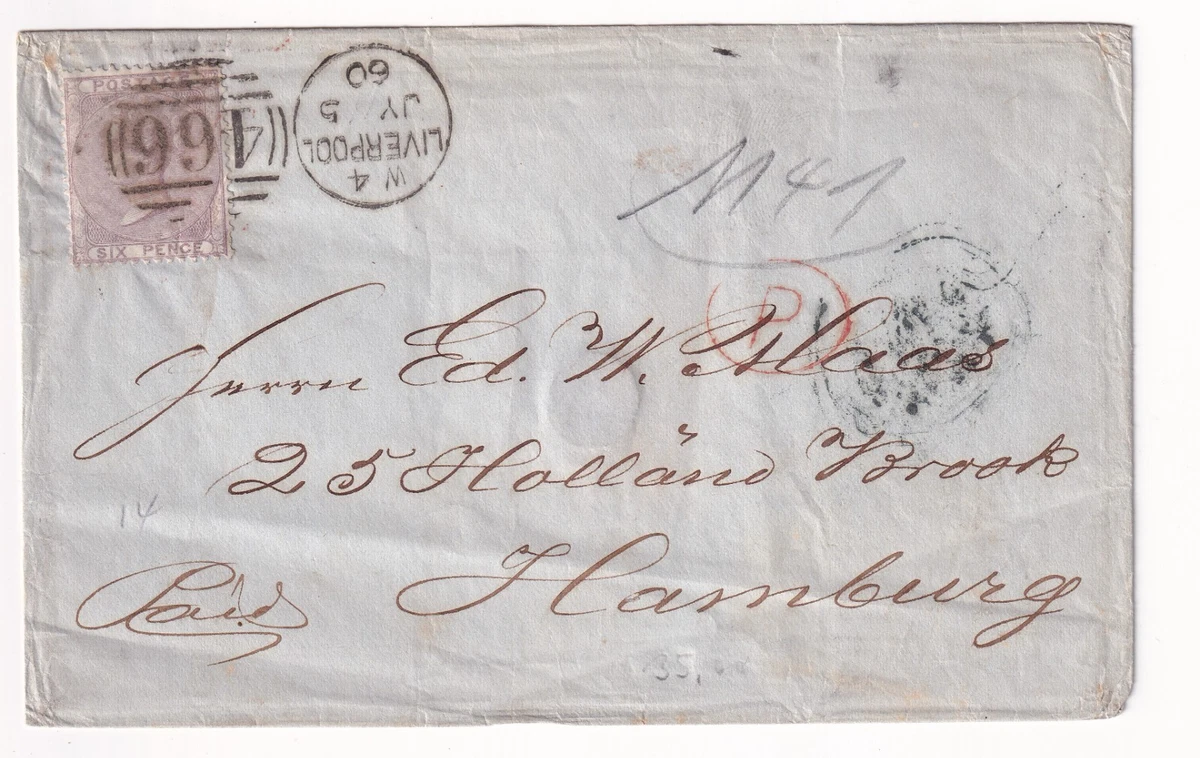 POSTAGE
466
LIVERPOOL
W 4
JY 5
60
SIX PENCE
P
Herrn Ed. W. Maas
25 Holländ Brook
14
Paid Hamburg